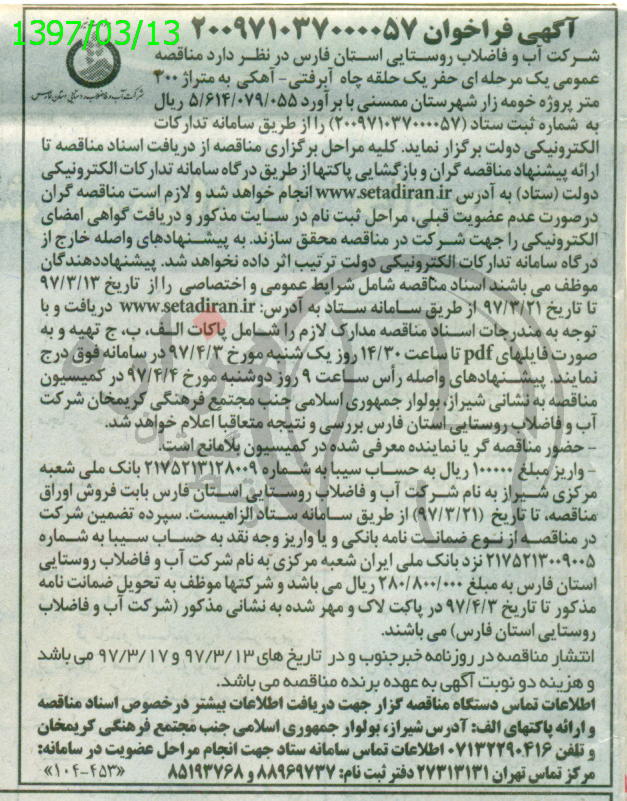 1397/03/13
آگهی فراخوان ۲۰۰۹۷۱۰۳۷۰۰۰۰۵۷
شرکت آب و فاضلاب روستایی استان فارس در نظر دارد مناقصه
عمومی یک مرحله ای حفر یک حلقه چاه آبرفتی- آهکی به متراژ ۳۰۰
متر پروژه خومه زار شهرستان ممسنی با برآورد ۵/۶۱۴/۰۷۹/۰۵۵ ریال
به شماره ثبت ستاد (۲۰۰۹۷۱۰۳۷۰۰۰۰۵۷) را از طریق سامانه تدارکات
شرکت آب و فاضلاب روستایی استان فارس
الکترونیکی دولت برگزار نماید. کلیه مراحل برگزاری مناقصه از دریافت اسناد مناقصه تا
ارائه پیشنهاد مناقصه گران و بازگشایی پاکتها از طریق درگاه سامانه تدارکات الکترونیکی
دولت (ستاد) به آدرس www.setadiran.ir انجام خواهد شد و لازم است مناقصه گران
درصورت عدم عضویت قبلی، مراحل ثبت نام در سایت مذکور و دریافت گواهی امضای
الکترونیکی را جهت شرکت در مناقصه محقق سازند. به پیشنهادهای واصله خارج از
درگاه سامانه تدارکات الکترونیکی دولت ترتیب اثر داده نخواهد شد. پیشنهاددهندگان
موظف می باشند اسناد مناقصه شامل شرایط عمومی و اختصاصی را از تاریخ ۹۷/۳/۱۳
تا تاریخ ۹۷/۳/۲۱ از طریق سامانه ستاد به آدرس: www.setadiran.ir دریافت و با
توجه به مندرجات اسناد مناقصه مدارک لازم را شامل پاکات الف، ب، ج تهیه و به
صورت فایلهای pdf تا ساعت ۱۴/۳۰ روز یک شنبه مورخ ۹۷/۴/۳ در سامانه فوق درج
نمایند. پیشنهادهای واصله رأس ساعت ۹ روز دوشنبه مورخ ۹۷/۴/۴ در کمیسیون
مناقصه به نشانی شیراز، بولوار جمهوری اسلامی جنب مجتمع فرهنگی کریمخان شرکت
آب و فاضلاب روستایی استان فارس بررسی و نتیجه متعاقبا اعلام خواهد شد.
- حضور مناقصه گر یا نماینده معرفی شده در کمیسیون بلامانع است.
- واریز مبلغ ۱۰۰۰۰۰ ریال به حساب سیبا به شماره ۲۱۷۵۲۱۳۱۲۸۰۰۹ بانک ملی شعبه
مرکزی شیراز به نام شرکت آب و فاضلاب روستایی استان فارس بابت فروش اوراق
مناقصه، تا تاریخ (۹۷/۳/۲۱) از طریق سامانه ستاد الزامیست. سپرده تضمین شرکت
در مناقصه از نوع ضمانت نامه بانکی و یا واریز وجه نقد به حساب سیبا به شماره
۲۱۷۵۲۱۳۰۰۹۰۰۵ نزد بانک ملی ایران شعبه مرکزی به نام شرکت آب و فاضلاب روستایی
استان فارس به مبلغ ۲۸۰/۸۰۰/۰۰۰ ریال می باشد و شرکتها موظف به تحویل ضمانت نامه
مذکور تا تاریخ ۹۷/۴/۳ در پاکت لاک و مهر شده به نشانی مذکور (شرکت آب و فاضلاب
روستایی استان فارس) می باشند.
انتشار مناقصه در روزنامه خبرجنوب و در تاریخ های ۹۷/۳/۱۳ و ۹۷/۳/۱۷ می باشد
و هزینه دو نوبت آگهی به عهده برنده مناقصه می باشد.
اطلاعات تماس دستگاه مناقصه گزار جهت دریافت اطلاعات بیشتر درخصوص اسناد مناقصه
و ارائه پاکتهای الف: آدرس شیراز، بولوار جمهوری اسلامی جنب مجتمع فرهنگی کریمخان
و تلفن ۰۷۱۳۲۲۹۰۴۱۶ اطلاعات تماس سامانه ستاد جهت انجام مراحل عضویت در سامانه:
مرکز تماس تهران ۲۷۳۱۳۱۳۱ دفتر ثبت نام: ۸۸۹۶۹۷۳۷ و ۸۵۱۹۳۷۶۸
«۱۰۴-۴۵۳»